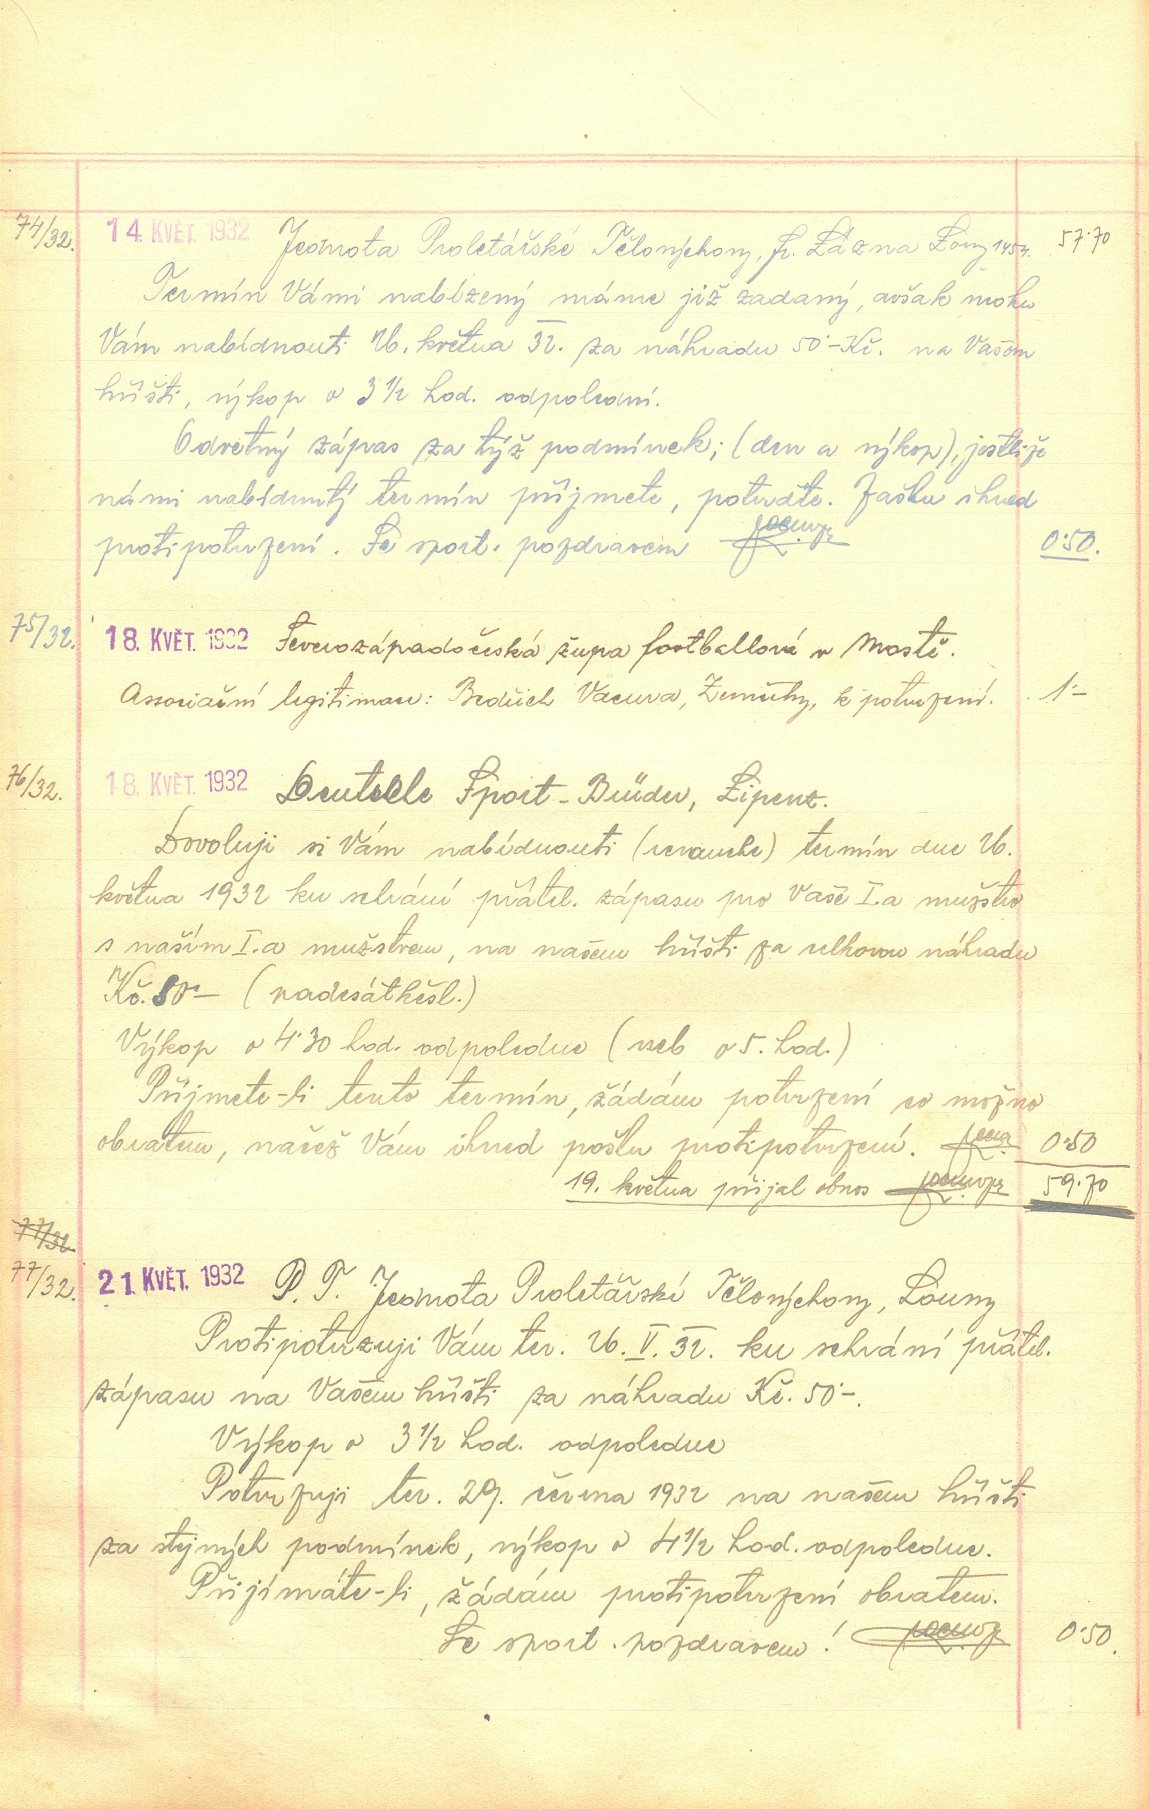 74/32. 14. KVĚT. 1932 Jednota Proletářské Tělovýchovy, fr. Lázna Louny 1454. 57·70
Termín Vámi nabízený máme již zadaný, avšak mohu
Vám nabídnouti 26. května 32. za náhradu 50·-Kč. na Vašem
hřišti, výkop v 3 1/2 hod. odpolední.
Odvetný zápas za týž podmínek; (den a výkop), jestliže
námi nabídnutý termín přijmete, potvrďte. Zašlu ihned
protipotvrzení. Se sport. pozdravem 0·50.
75/32. 18. KVĚT. 1932 Severozápadočeská župa footballová v Mostě.
Associační legitimace: Bedřich Vacura, Zeměchy, k potvrzení. 1·-
76/32. 18. KVĚT. 1932 Deutsche Sport-Brüder, Lipenz.
Dovoluji si Vám nabídnouti (revanche) termín dne 26.
května 1932 ku sehrání přátel. zápasu pro Vaše I.a mužstvo
s naším I.a mužstvem, na našem hřišti za celkovou náhradu
Kč. 80·- (
Výkop v 4·30 hod. odpoledne (neb v 5. hod.)
Přijmete-li tento termín, žádám potvrzení co možno
obratem, načež Vám ihned pošlu protipotvrzení. 0·50
19. května přijal obnos 59·70
77/32
77/32. 21. KVĚT. 1932 P. T. Jednota Proletářské Tělovýchovy, Louny
Protipotvrzuji Vám ter. 26. V. 32. ku sehrání přátel.
zápasu na Vašem hřišti za náhradu Kč. 50·-.
Výkop v 3 1/2 hod. odpoledne
Potvrzuji ter. 29. června 1932 na našem hřišti
za stejných podmínek, výkop v 4 1/2 hod. odpoledne.
Přijímáte-li, žádám protipotvrzení obratem.
Se sport. pozdravem! 0·50.